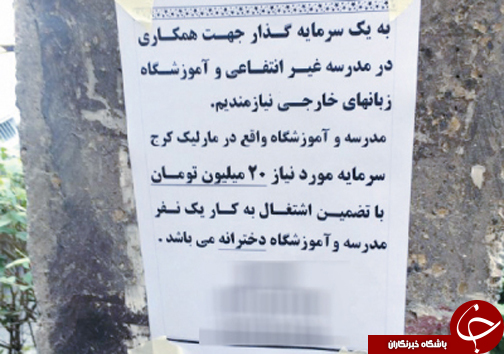 به یک سرمایه گذار جهت همکاری
در مدرسه غیر انتفاعی و آموزشگاه
زبانهای خارجی نیازمندیم.
مدرسه و آموزشگاه واقع در مارلیک کرج
سرمایه مورد نیاز ۲۰ میلیون تومان
با تضمین اشتغال به کار یک نفر
مدرسه وآموزشگاه دخترانه می باشد .
باشگاه خبرنگاران